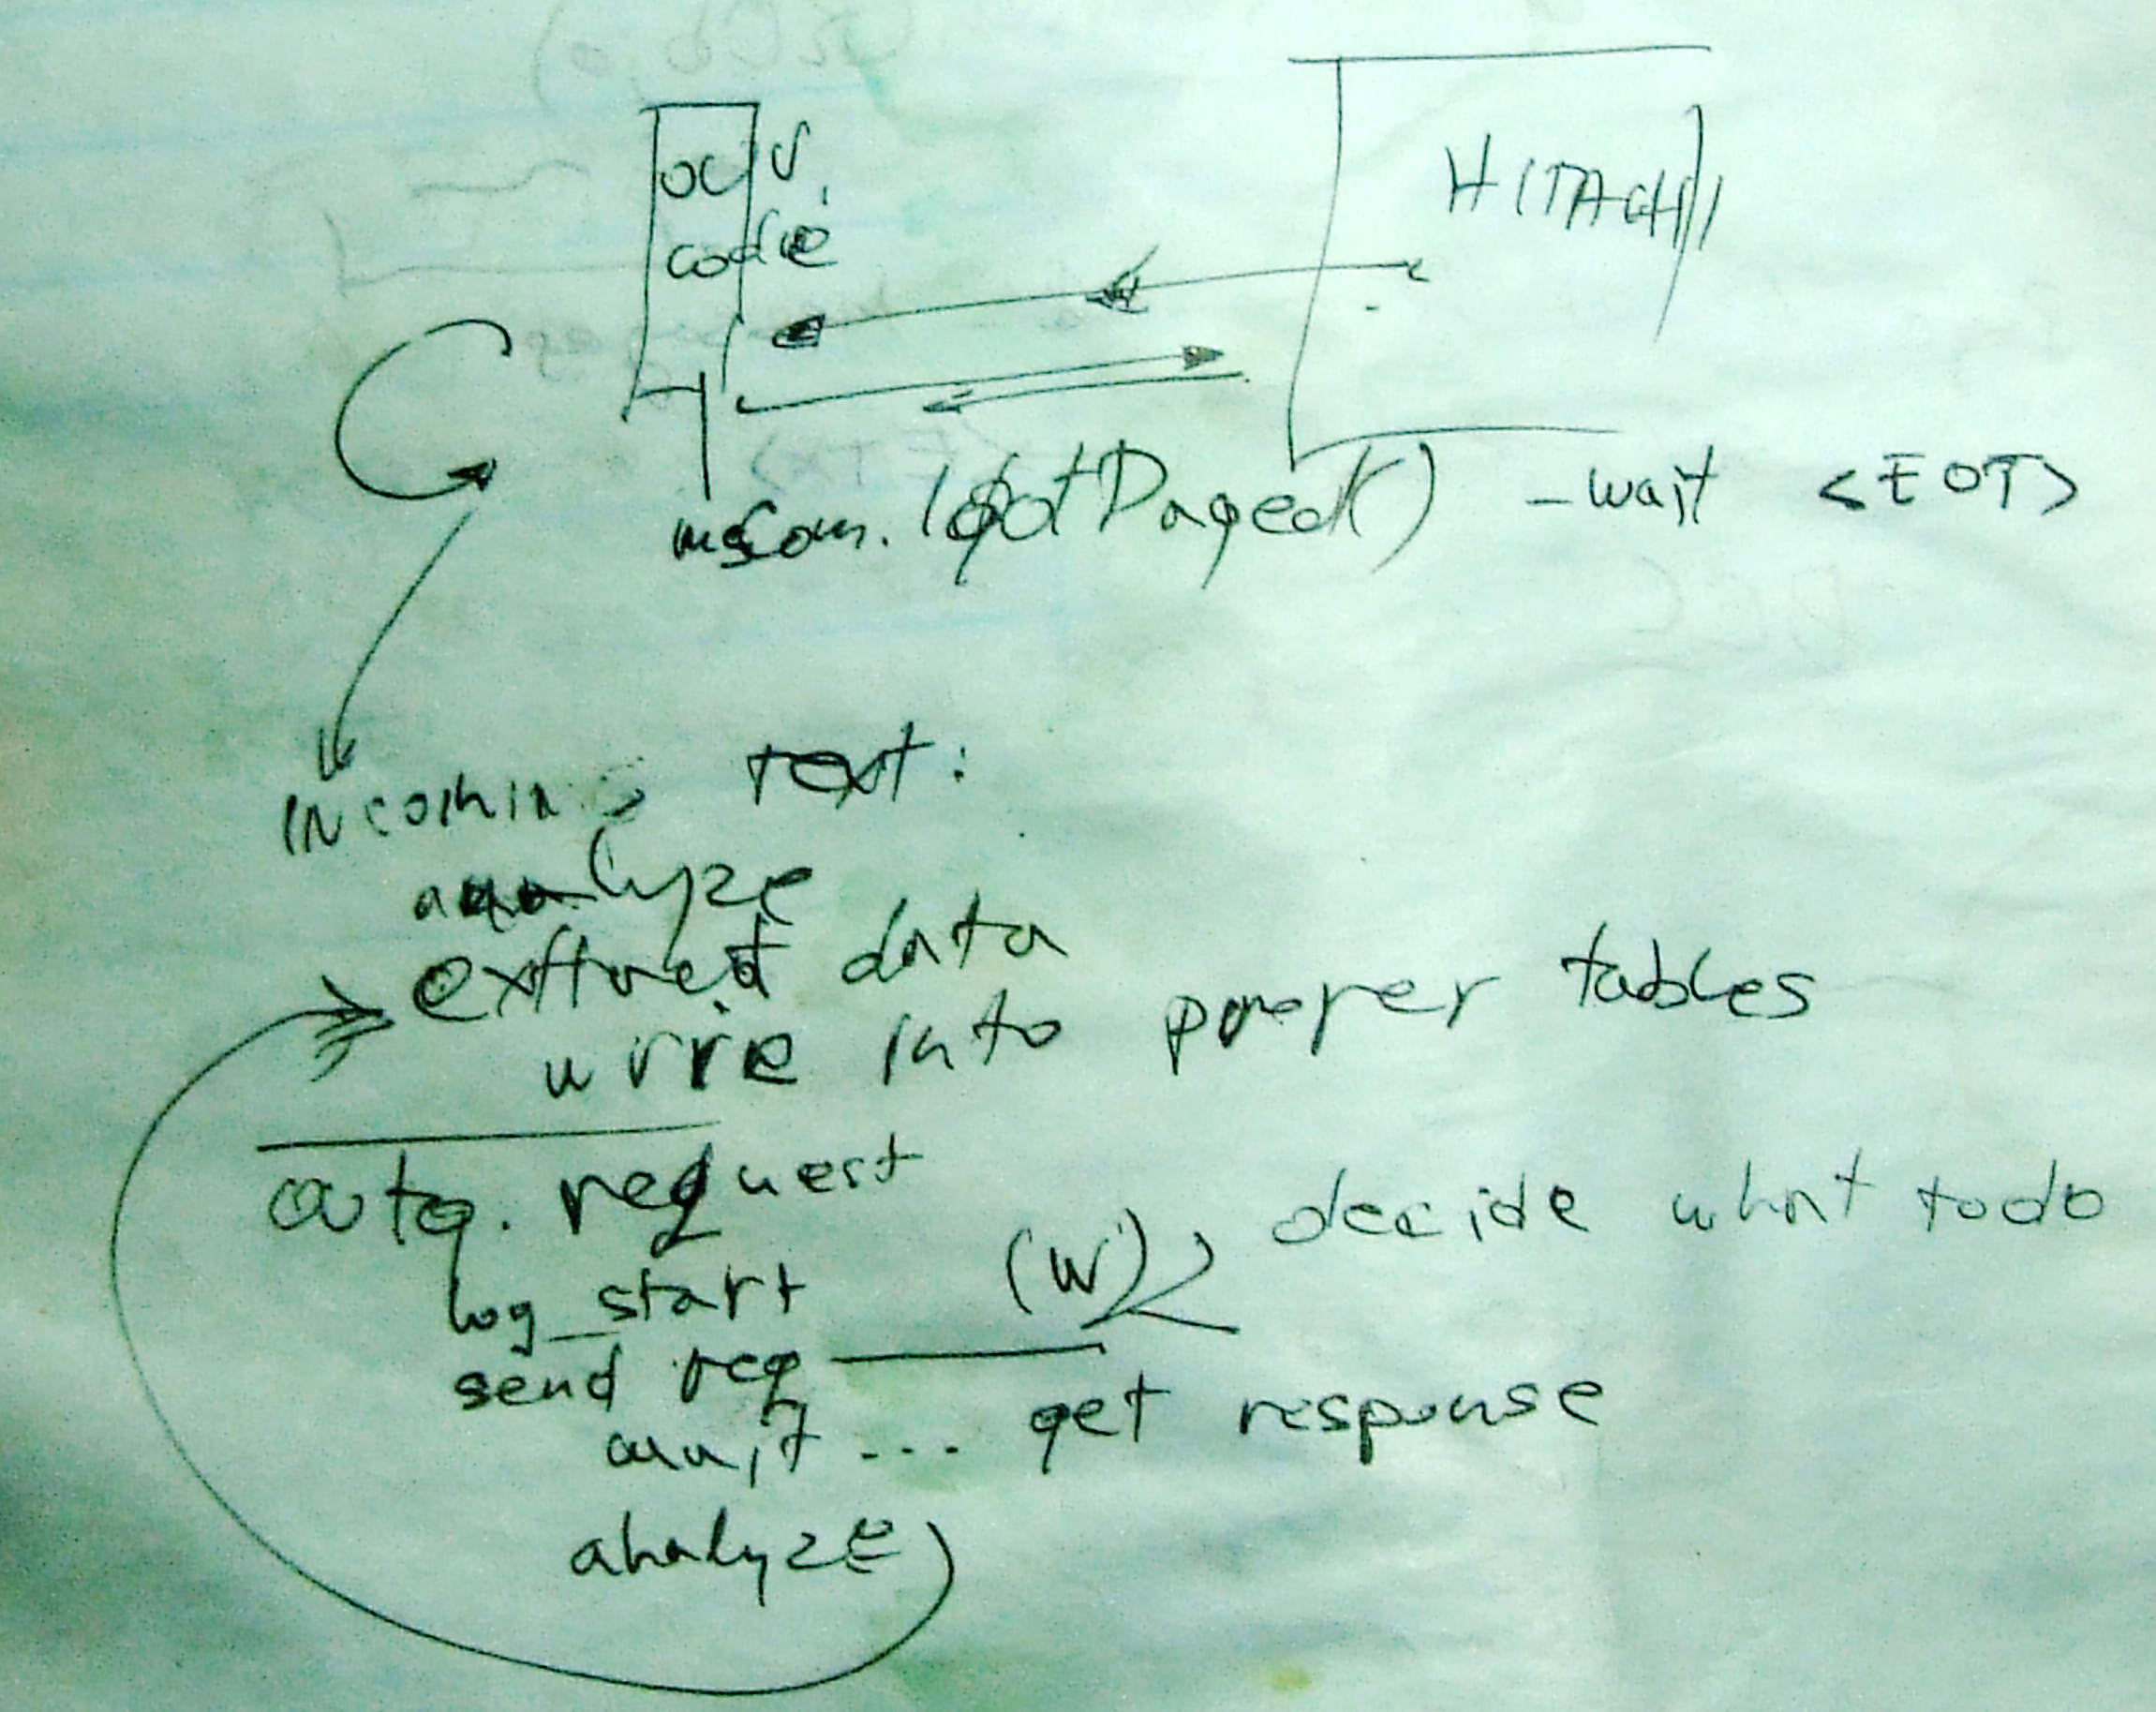 our
code
HITACHI
- wait <EOT>
Incoming text:
analyze
extract data
wrire into proper tables
request
decide what todo
log_start (W)
send req
wait ... get response
analyze